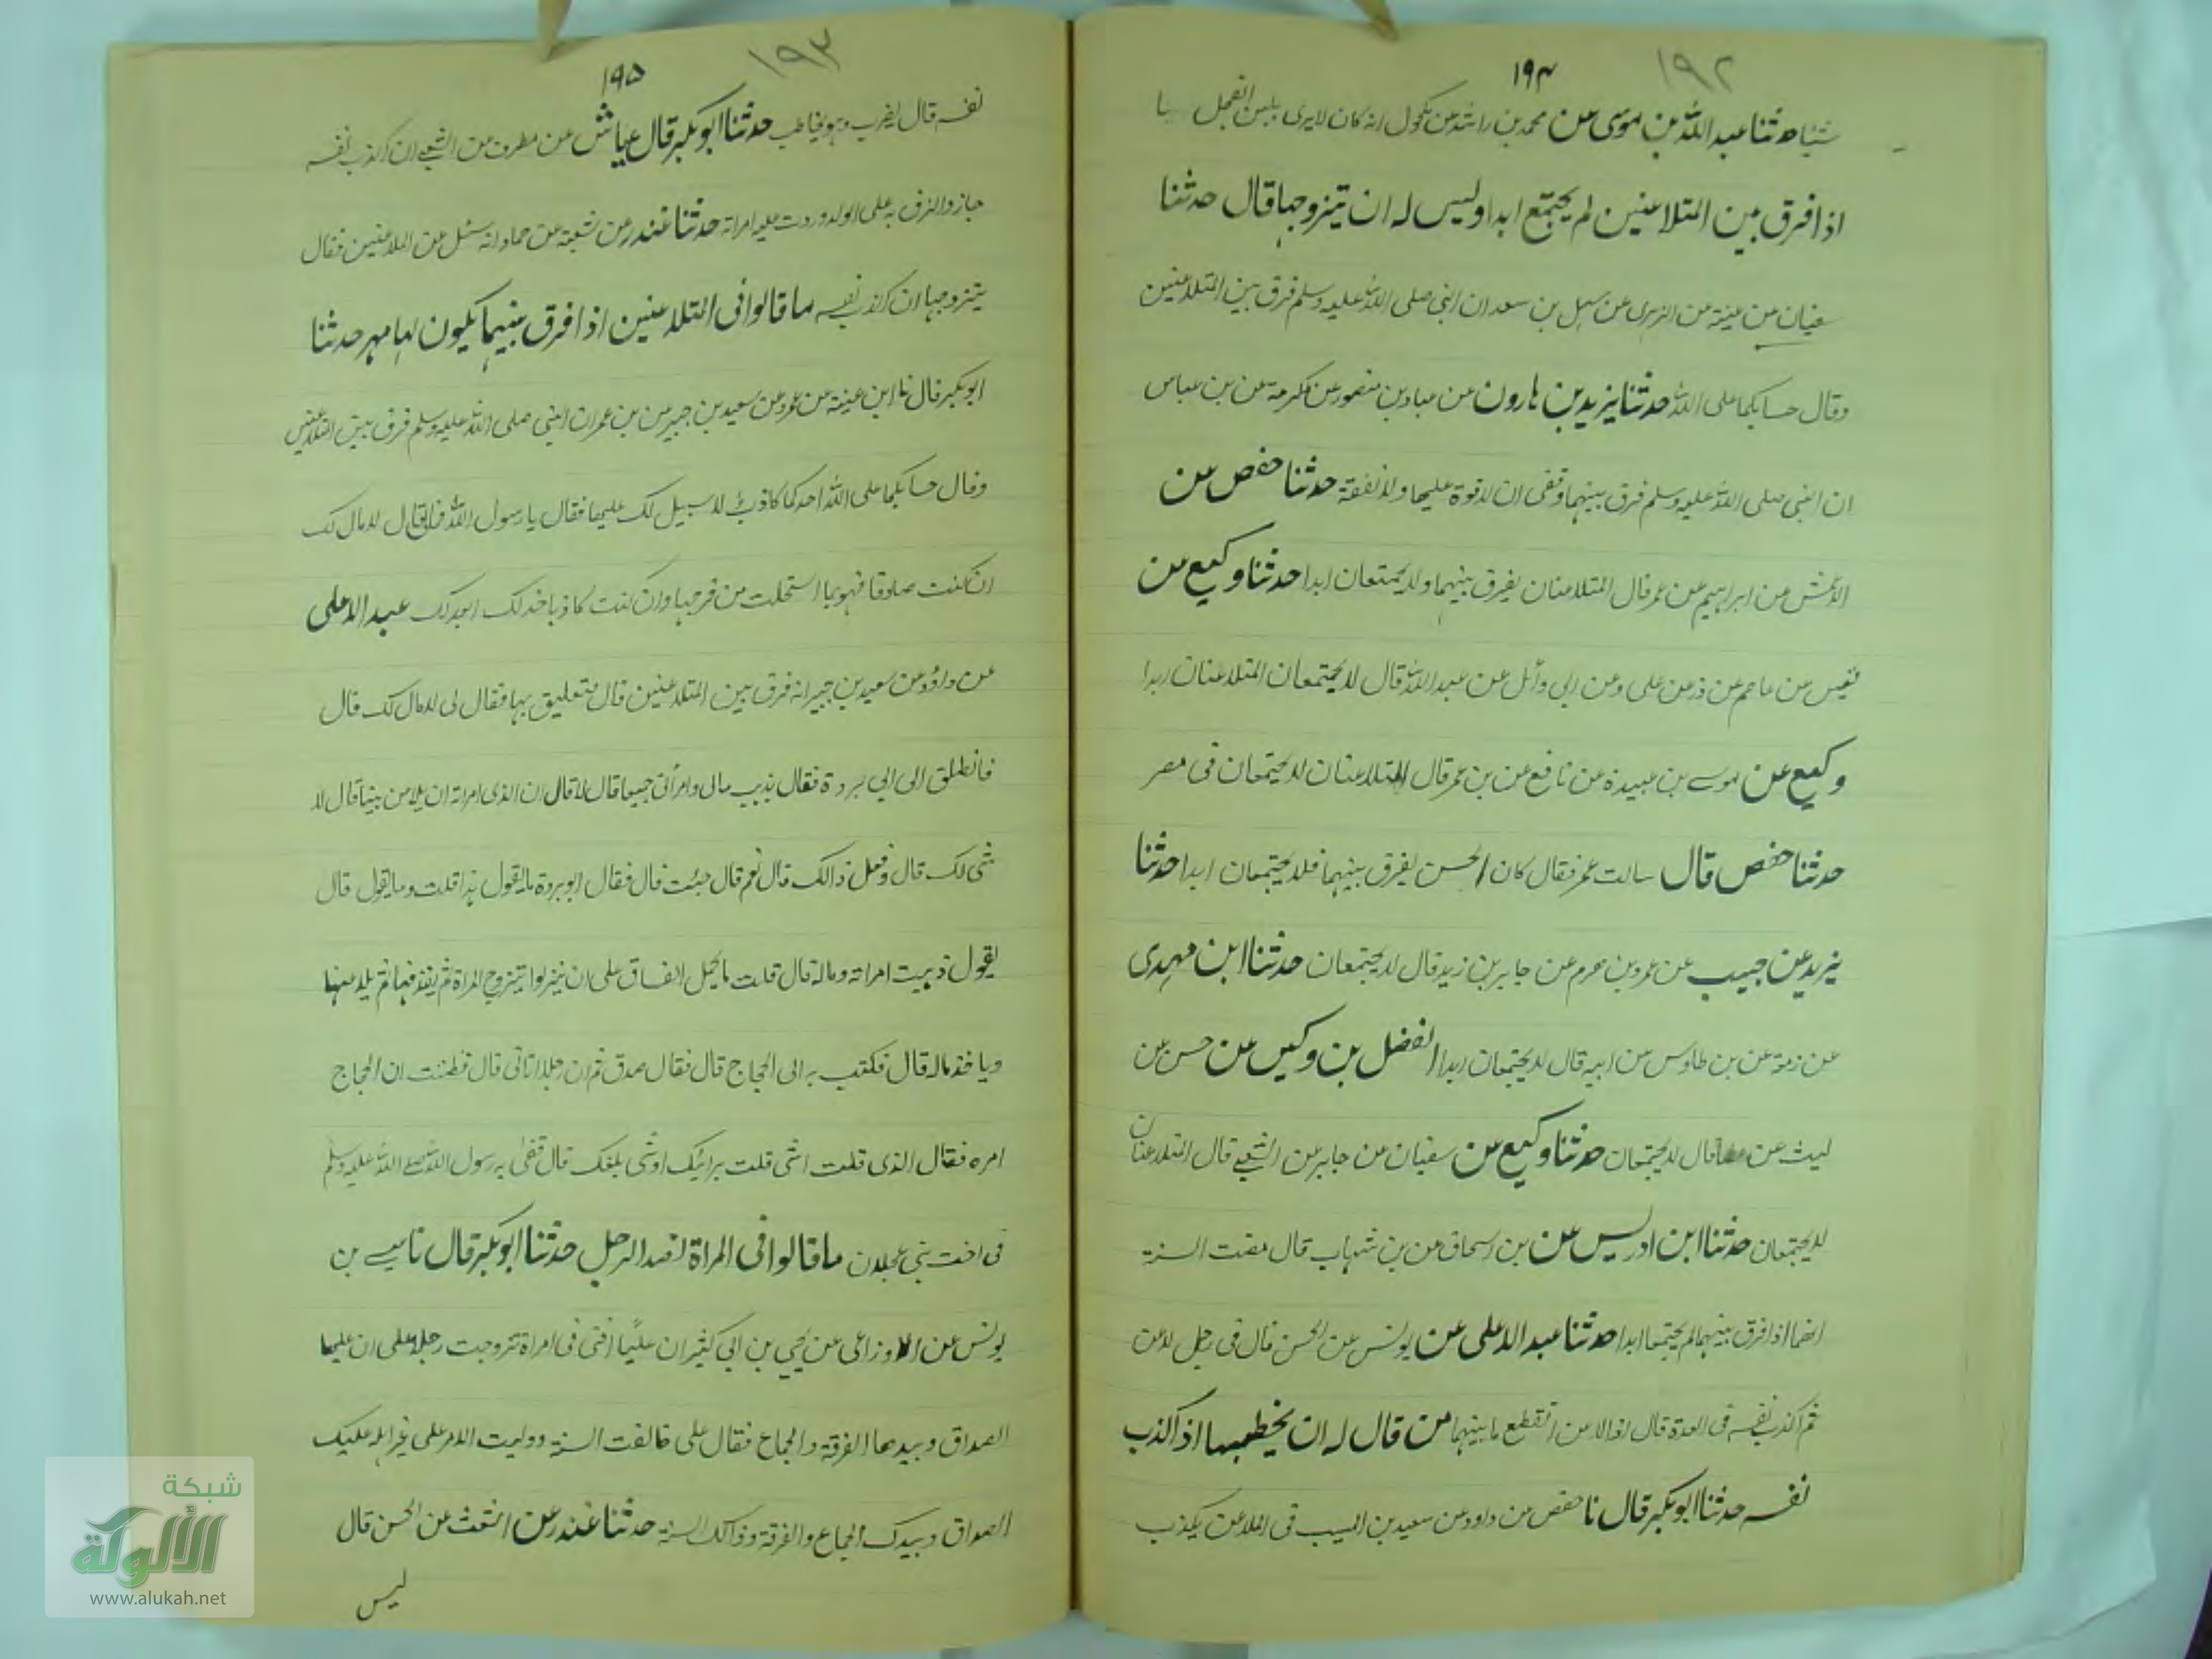 ١٩٢
١٩٤
شيئا حدثنا عبد الله بن موسى عن محمد بن راشد عن مكحول انه كان لا يرى بلبس
اذا فرق بين المتلاعنين لم يجتمع ابدا وليس له ان يتزوجها قال حدثنا
سفيان بن عيينة عن الزهرى عن سهل بن سعد ان النبى صلى الله عليه وسلم فرق بين المتلاعنين
وقال حسابكما على الله حدثنا يزيد بن هارون عن عباد بن منصور عن عكرمة عن بن عباس
ان النبى صلى الله عليه وسلم فرق بينهما وقضى ان لا قوة عليها ولا نفقة حدثنا حفص عن
الاعمش عن ابراهيم عن عمر قال المتلاعنان يفرق بينهما ولا يجتمعان ابدا حدثنا وكيع عن
قيس عن عاصم عن ذر عن على وعن ابى وائل عن عبد الله قال لا يجتمعان المتلاعنان ابدا
وكيع عن موسى بن عبيدة عن نافع عن بن عمر قال المتلاعنان لا يجتمعان فى مصر
حدثنا حفص قال سالت عمر فقال كان الحسن يفرق بينهما فلا يجتمعان ابدا حدثنا
يزيد عن حبيب عن عمرو بن هرم عن جابر بن زيد قال لا يجتمعان حدثنا ابن مهدى
عن زمعة عن بن طاوس عن ابيه قال لا يجتمعان ابدا الفضل بن دكين عن حسن عن
ليث عن عطا قال لا يجتمعان حدثنا وكيع عن سفيان عن جابر عن الشعبى قال المتلاعنان
لا يجتمعان حدثنا ابن ادريس عن بن اسحاق عن بن شهاب قال مضت السنة
انهما اذا فرق بينهما لم يجتمعا ابدا حدثنا عبد الاعلى عن يونس عن الحسن قال فى رجل لاعن
ثم اكذب نفسه فى العدة قال اذا لاعن انقطع ما بينهما من قال له ان يخطبها اذا اكذب
نفسه حدثنا ابو بكر قال نا حفص عن داود عن سعيد بن المسيب فى الملاعن يكذب
١٩٣
١٩٥
نفسه قال يضرب وهو خاطب حدثنا ابو بكر قال عياش عن مطرف عن الشعبى ان اكذب نفسه
جلد والزق به على الولد وردت عليه امراته حدثنا غندر عن شعبة عن حماد انه سئل عن الملاعنين فقال
يتزوجها ان اكذب نفسه ما قالوا فى المتلاعنين اذا فرق بينهما يكون لها مهر حدثنا
ابو بكر قال نا ابن عيينة عن عمرو عن سعيد بن جبير عن بن عمر ان النبى صلى الله عليه وسلم فرق بين المتلاعنين
وقال حسابكما على الله احدكما كاذب لا سبيل لك عليها فقال يا رسول الله مالى قال لا مال لك
ان كنت صادقا فهو بما استحللت من فرجها وان كنت كاذبا فذلك ابعد لك عبد الاعلى
عن داؤد عن سعيد بن جبير انه فرق بين المتلاعنين قال فتعليق بها فقال لى لا مال لك قال
فانطلق الى ابى بردة فقال يذهب مالى وامرأتى جميعا قال لا قال ان الذى امرته ان يلاعن بيننا قال لا
شى لك قال وفعل ذالك قال نعم قال جئت قال فقال ابو بردة ما يقول هذا قلت وما يقول قال
يقول ذهبت امراته وماله قال قلت ما يحمل الفساق على ان ينزلوا يتزوج المراة ثم يقذفها ثم يلاعنها
وياخذ ماله قال فكتب به الى الحجاج قال فقال صدق ثم ان رجلا اتانى قال فظننت ان الحجاج
امره فقال الذى قلت اشى قلت برايك او شى بلغك قال قضى به رسول الله صلى الله عليه وسلم
فى اخت بنى عجلان ما قالوا فى المراة لصد الرجل حدثنا ابو بكر قال نا عيسى بن
يونس عن الاوزاعى عن يحيى بن ابى كثير ان عليًا افتى فى امراة تزوجت رجلا على ان عليها
الصداق وبيدها الفرقة والجماع فقال على خالفت السنة ووليت الامر على غير اهله عليك
الصداق وبيدك الجماع والفرقة وذالك السنة حدثنا غندر عن اشعث عن الحسن قال
ليس
شبكة
الألوكة
www.alukah.net